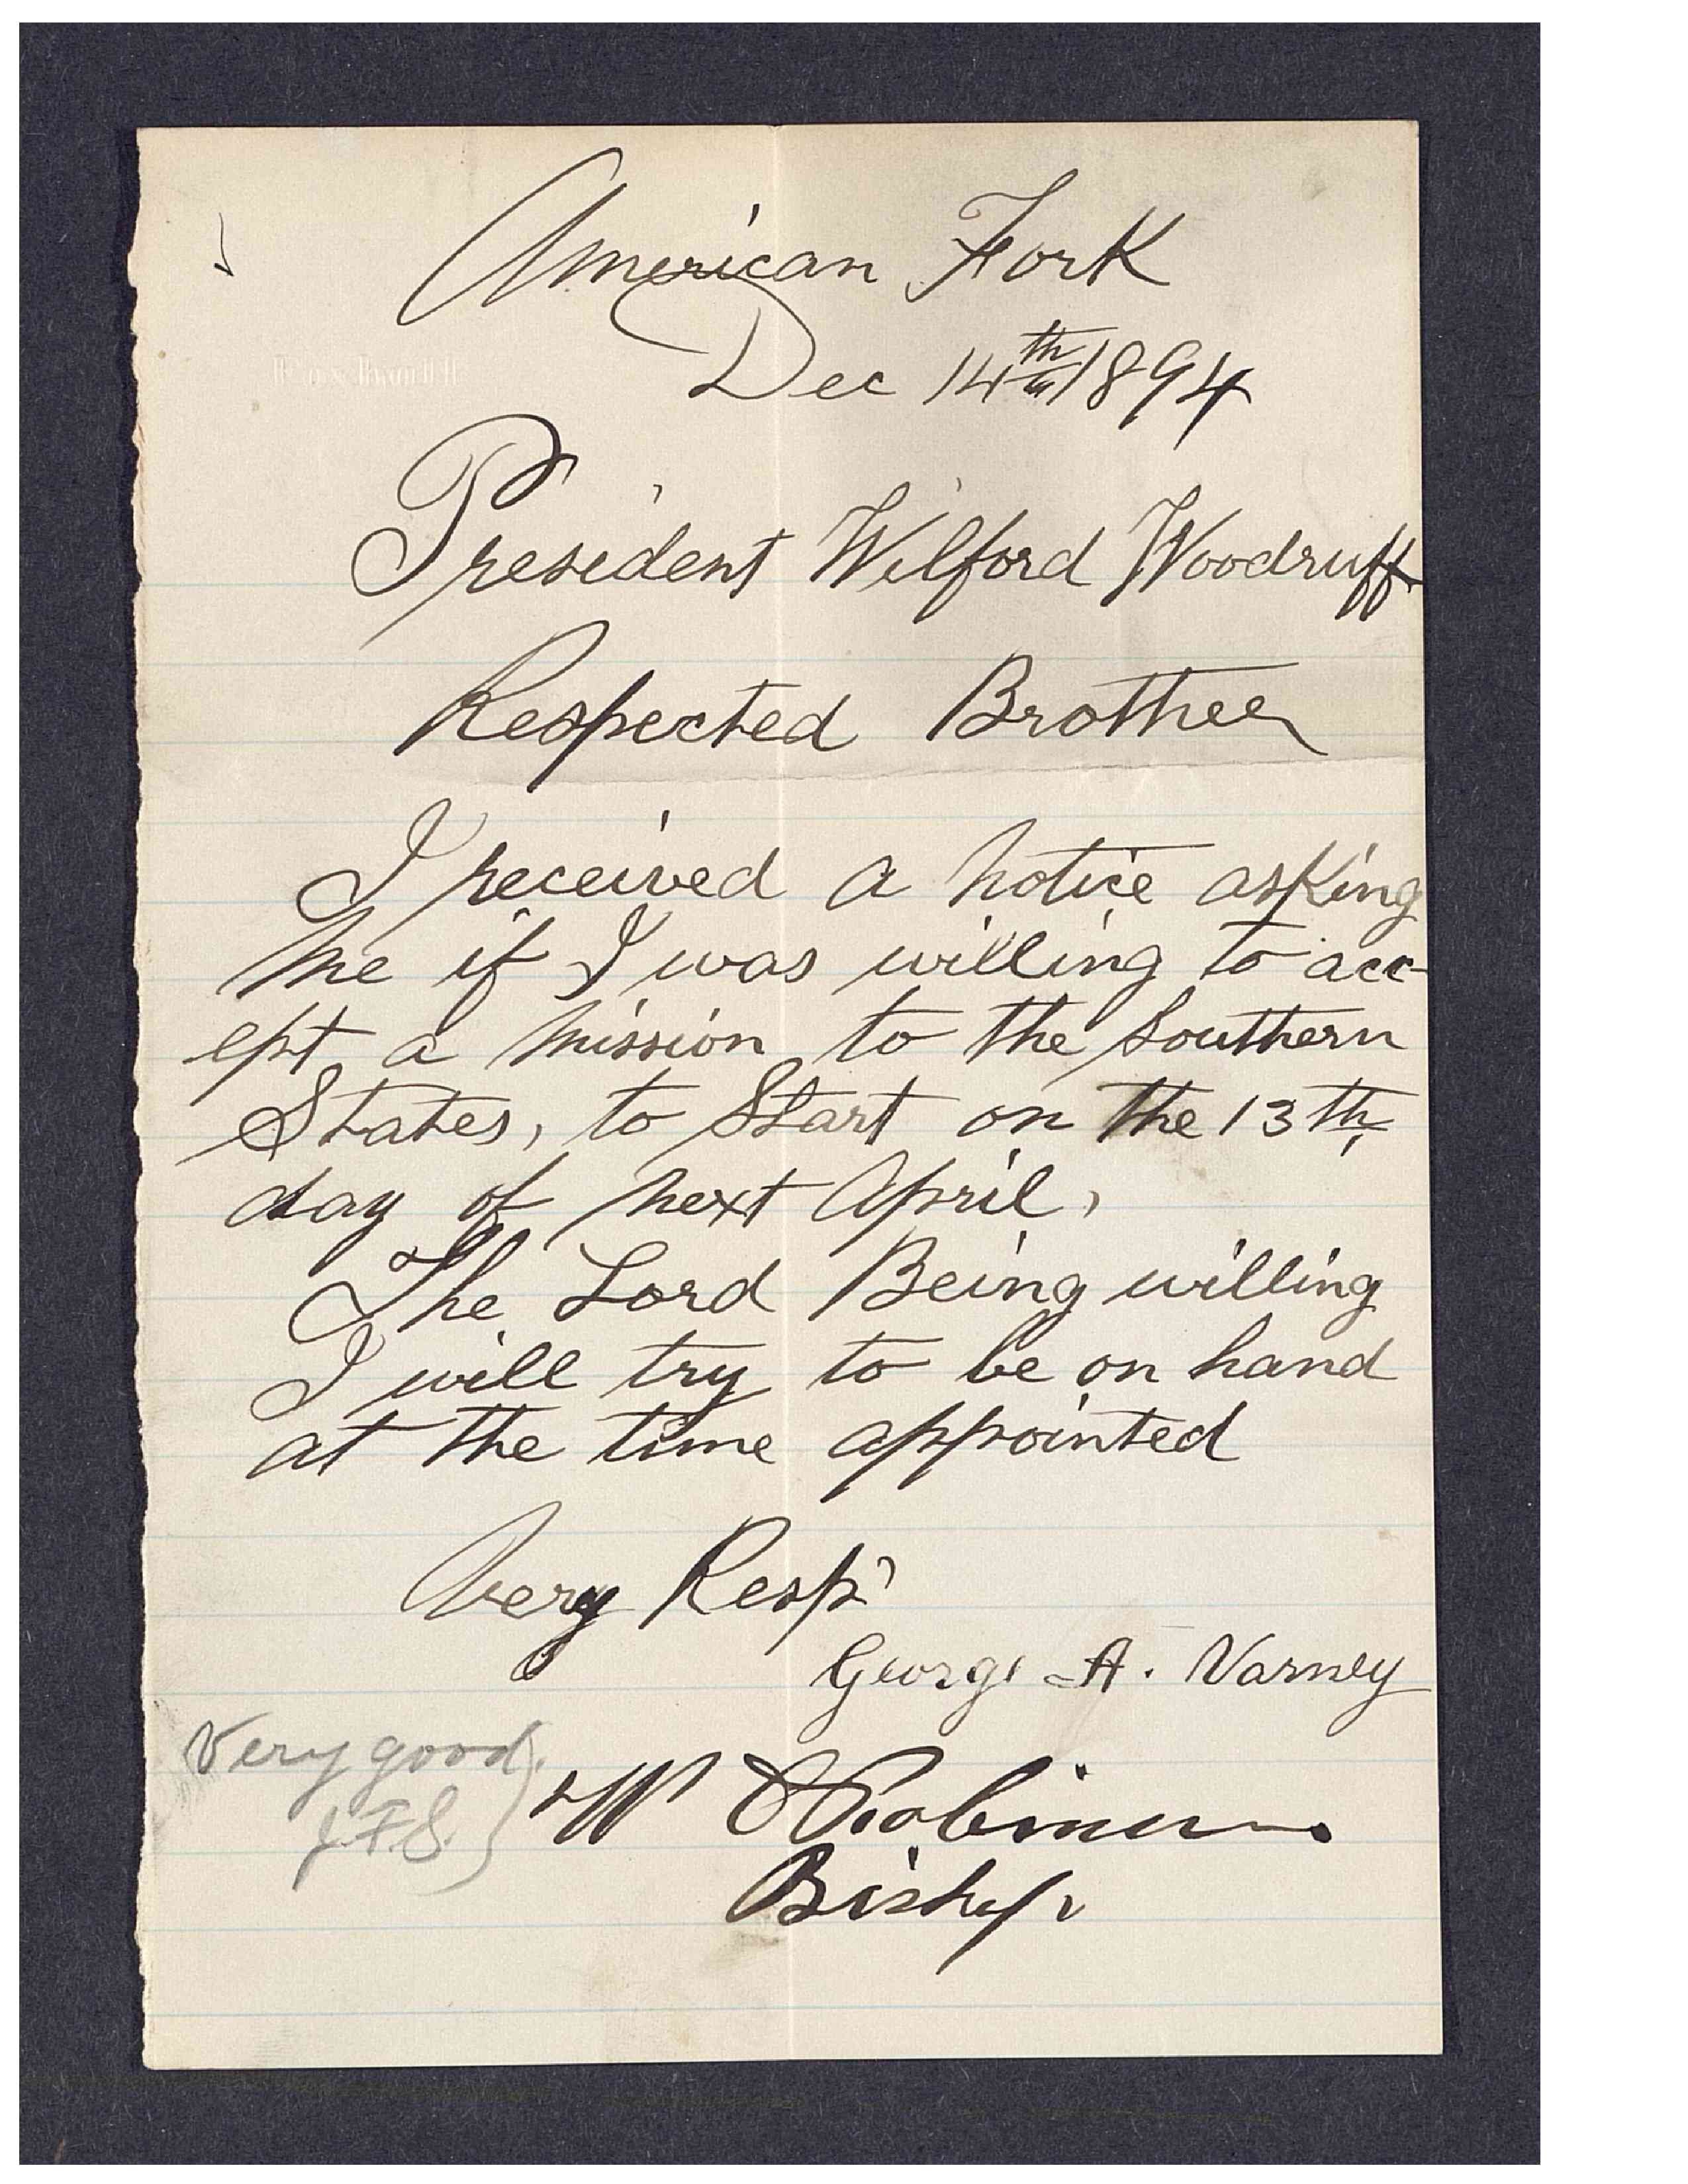 American Fork
Dec 14th 1894
President Wilford Woodruff
Respected Brother
I received a notice asking
me if I was willing to acc-
ept a mission to the Southern
States, to Start on the 13th
day of next April,
The Lord Being willing
I will try to be on hand
at the time appointed
Very Resp
George A. Varney
Very good
JFS
Robinson
Bishop